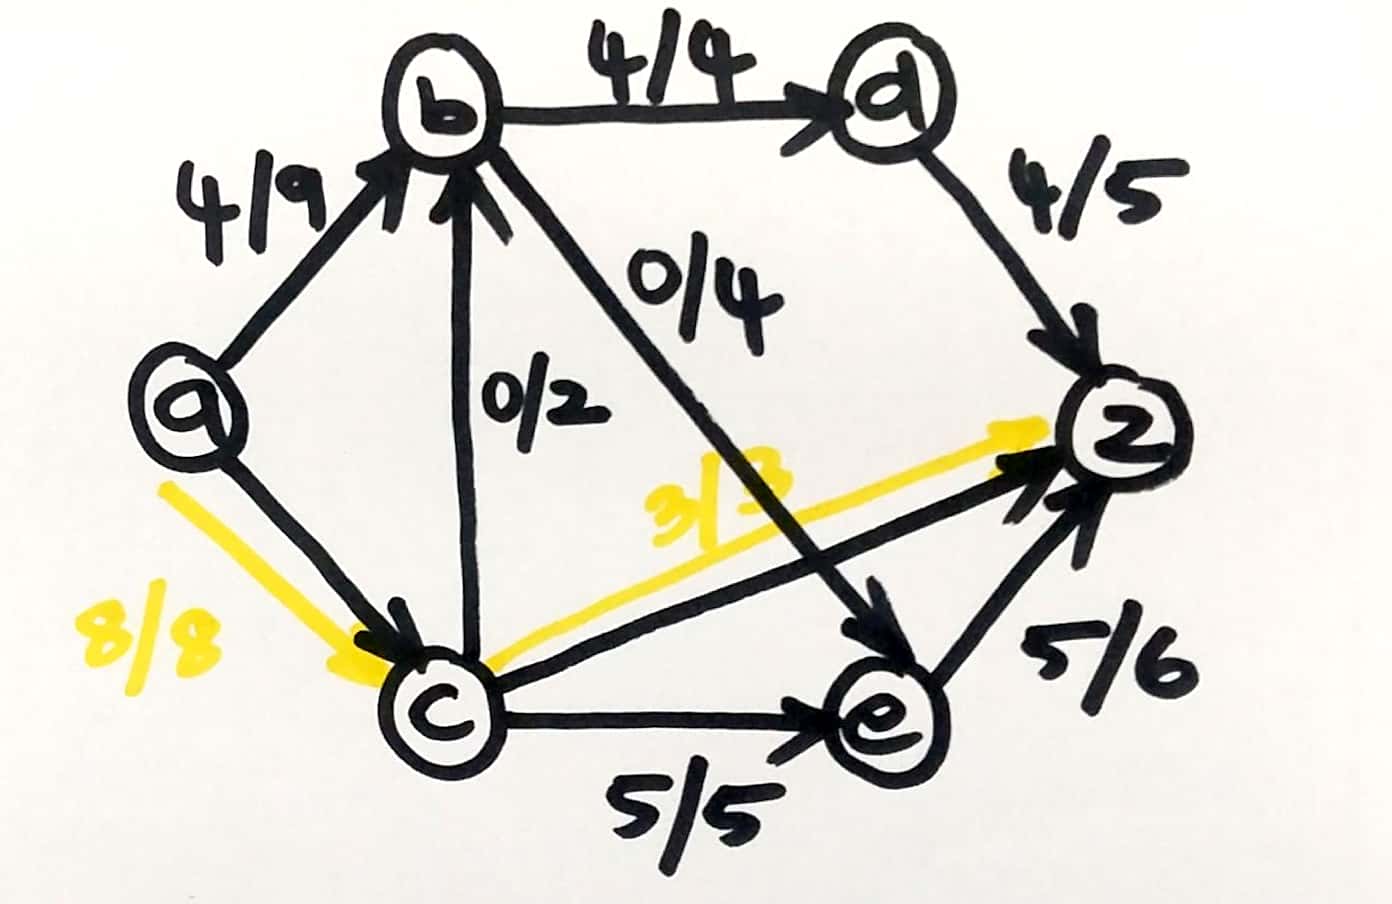 4/4
b
d
4/9
4/5
0/4
a
0/2
z
3/3
8/8
c
e
5/6
5/5